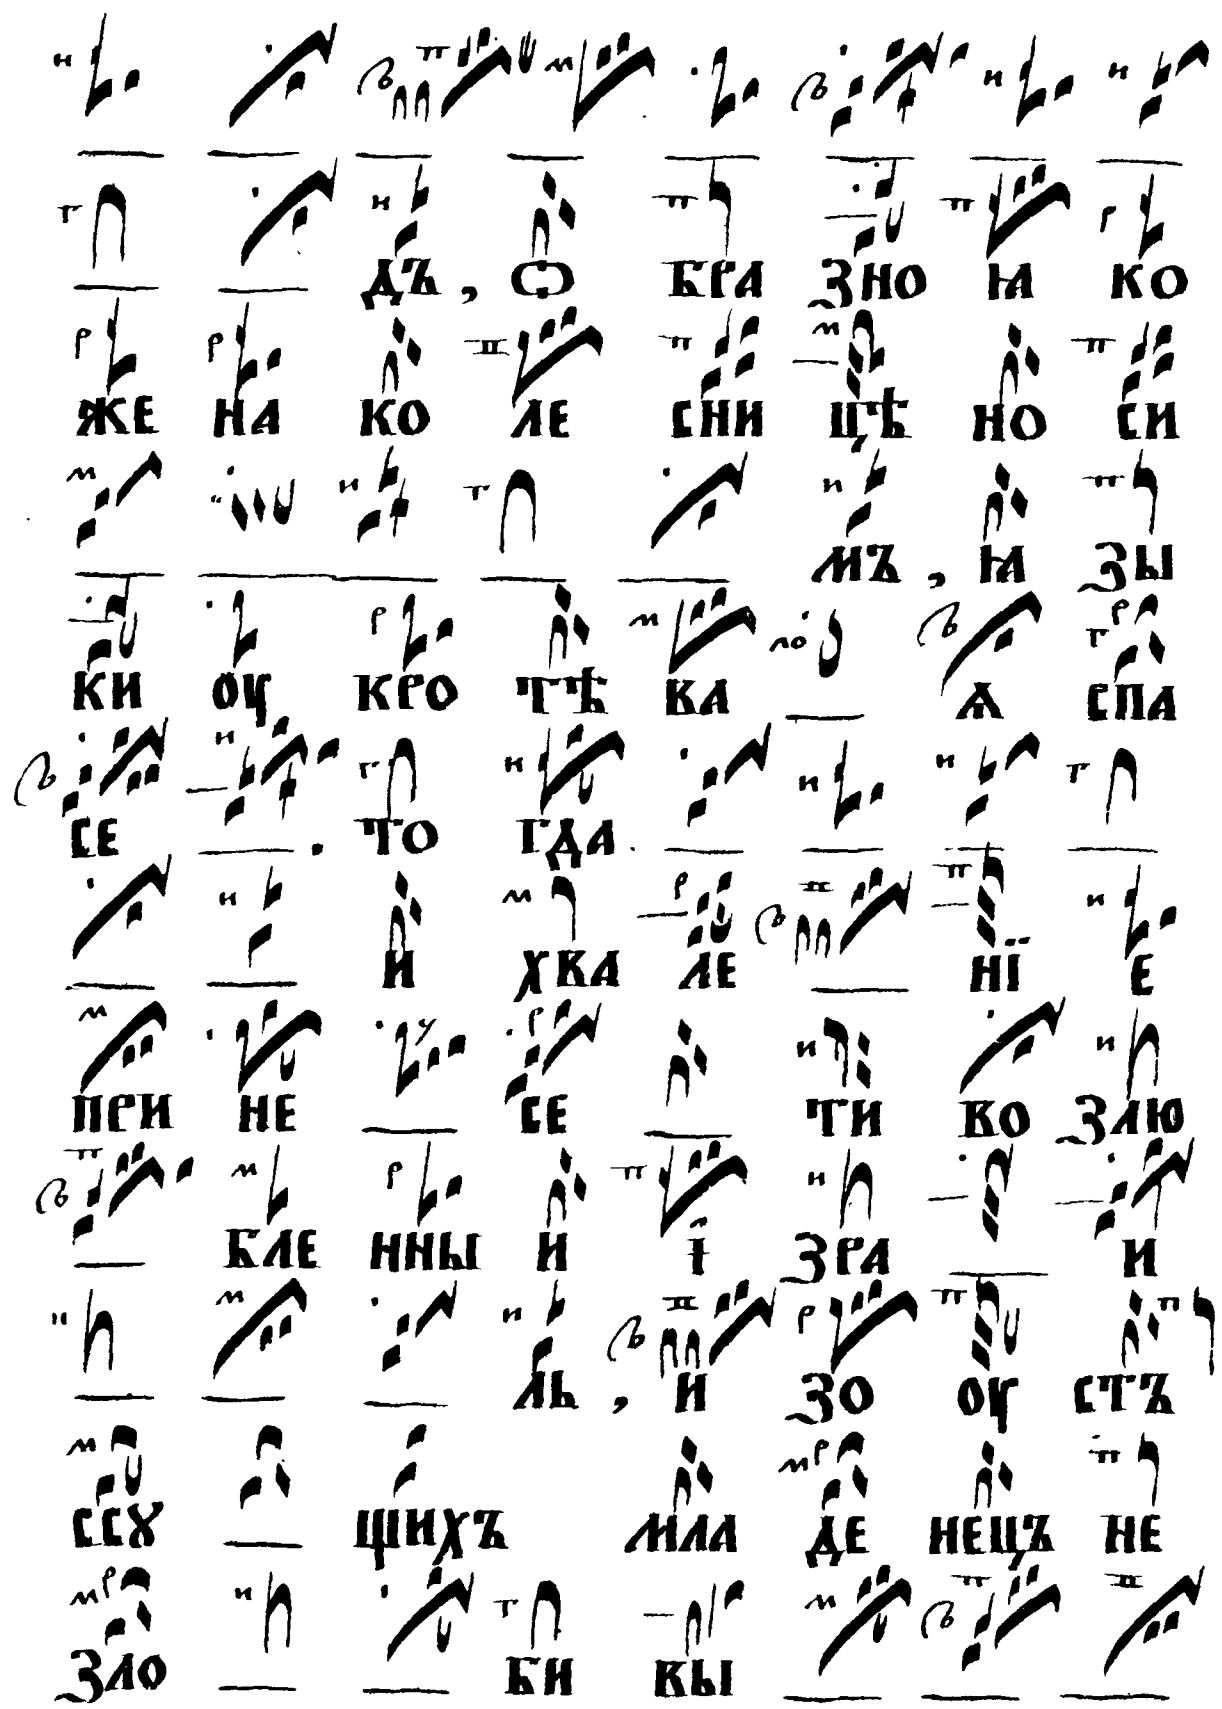 дъ, ѡ бра зно ꙗ ко
же на ко ле сни цѣ но си
мъ, ꙗ зы
ки оу кро тѣ ва ѧ спа
се . то гда .
и хва ле нї е
при не се ти во злю
бле нны и ї зра и
ль, и зо оу стъ
ссꙋ щихъ мла де нецъ не
зло би вы